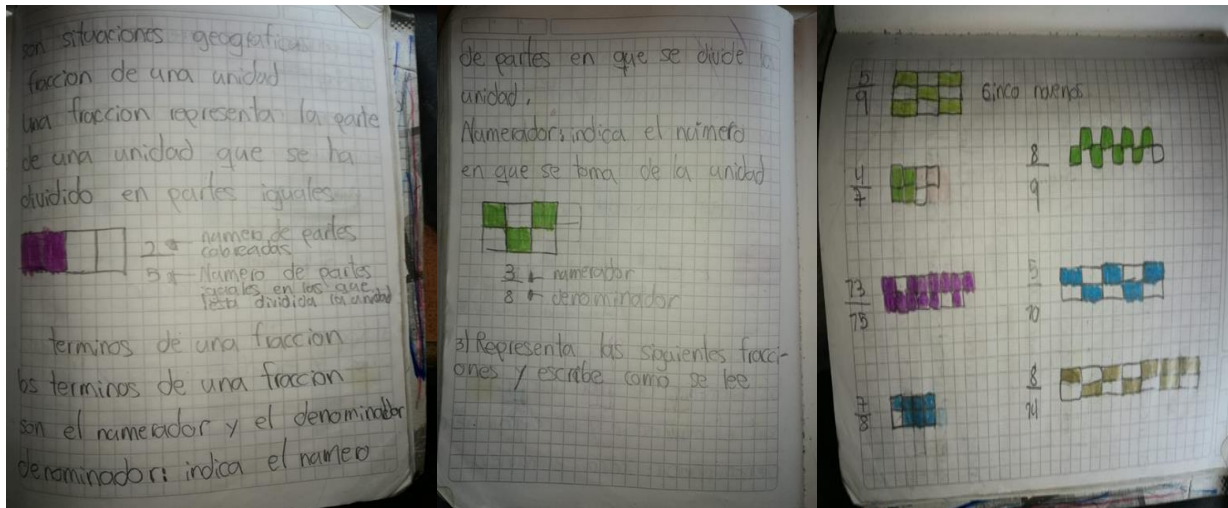 son situaciones geograficas
fraccion de una unidad
una fraccion representa la parte
de una unidad que se ha
dividido en partes iguales
2 ← numero de partes
coloreadas
5 ← Numero de partes
iguales en las que
esta dividida la unidad
terminos de una fraccion
los terminos de una fraccion
son el numerador y el denominador
denominador: indica el numero
de partes en que se divide la
unidad.
Numerador: indica el número
en que se toma de la unidad
3 ← numerador
8 ← denominador
3) Representa las siguientes fracci-
ones y escribe como se lee
5/9 Cinco novenos
8/9
4/7
13/15
5/10
7/8
8/14